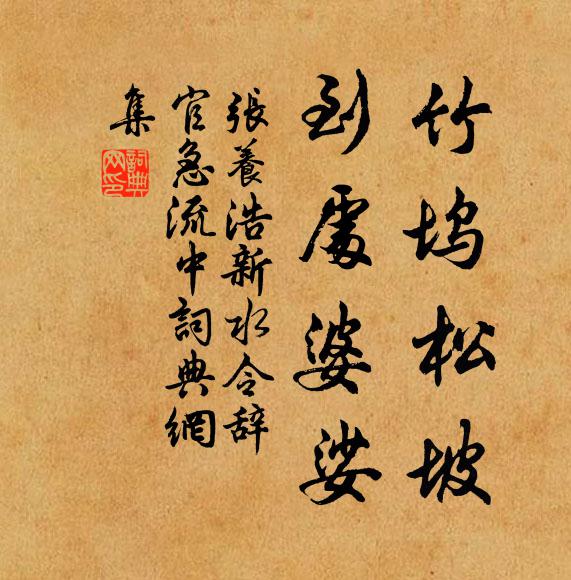 竹坞松坡
到處婆娑
張養浩新水令辞
官急流中詞典網
集
詞典网印